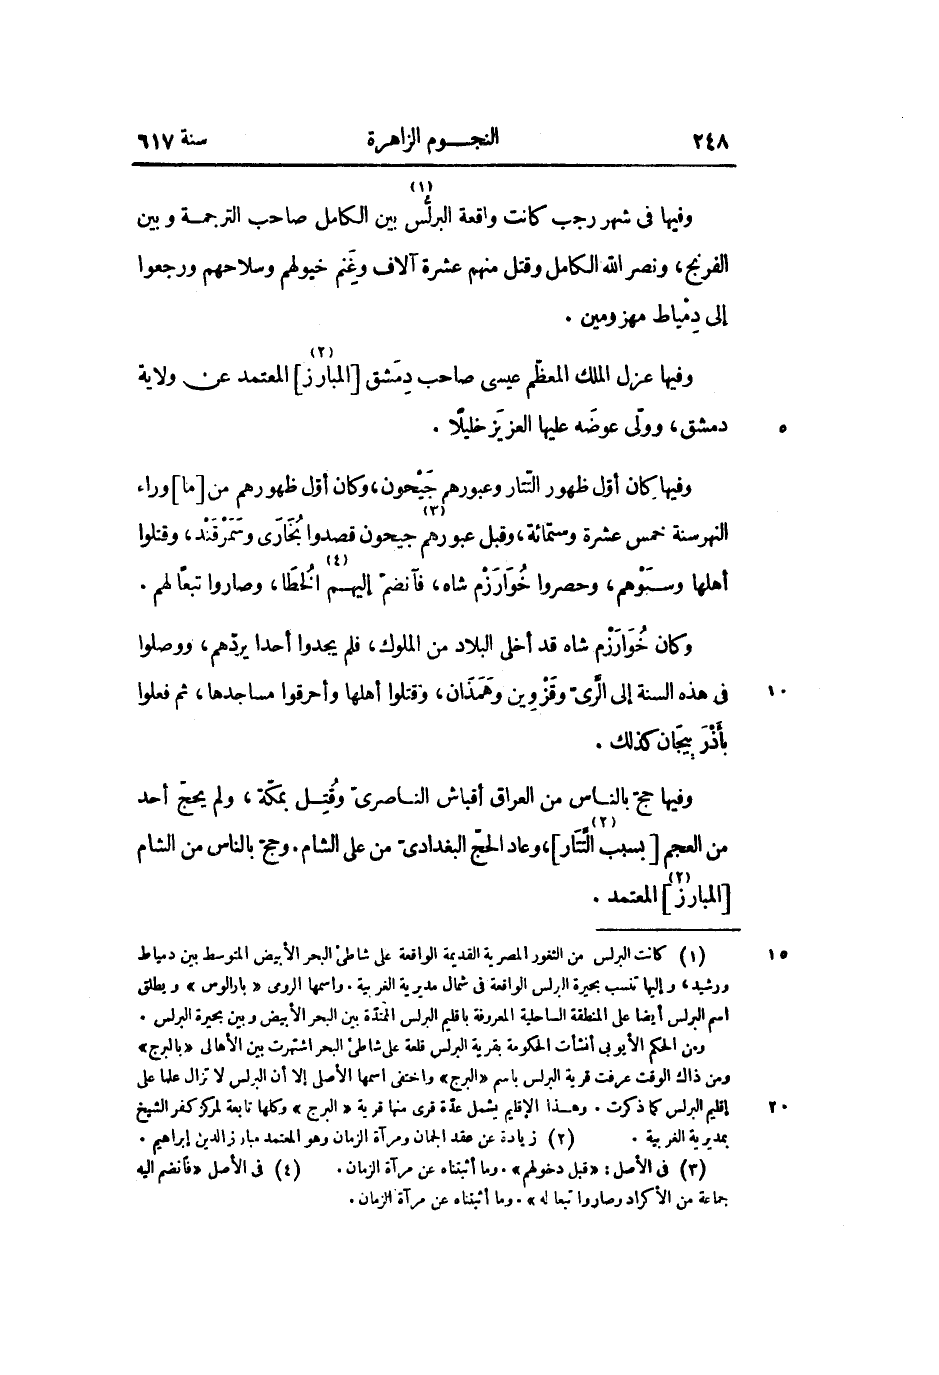 ٢٤٨ النجــوم الزاهرة سنة ٦١٧
(١)
وفيها فى شهر رجب كانت واقعة البرلُّس بين الكامل صاحب الترجمــة وبين
الفرنج، ونصر الله الكامل وقتل منهم عشرة آلاف وغَنِم خيولهم وسلاحهم ورجعوا
إلى دِمْياط مهزومين .
(٢)
وفيها عزل الملك المعظّم عيسى صاحب دِمَشق [المبارز] المعتمد عن ولاية
٥ دمشق، وولّى عوضَه عليها العزيزَ خليلًا .
وفيها كان أوّل ظهور التّتار وعبورهم جَيْحون، وكان أوّل ظهورهم من [ما] وراء
(٣)
النهر سنة خمس عشرة وستمّائة، وقبل عبورهم جيحون قصدوا بُخَارَى وسَمَرْقَنْد، وقتلوا
(٤)
أهلها وسـبَوْهم، وحصروا خُوَارَزْم شاه، فآنضمّ إليهــم الخُطَا، وصاروا تبعًا لهم .
وكان خُوَارَزْم شاه قد أخلى البلاد من الملوك، فلم يجدوا أحدا يردّهم، ووصلوا
١٠ فى هذه السنة إلى الرَّىّ وقَزْوِين وهَمَذَان، وقتلوا أهلها وأحرقوا مساجدها، ثم فعلوا
بأَذْرَبِيجَان كذلك .
وفيها حجّ بالنـاس من العراق أقباش النـاصرىّ وقُتِـل بمكّة، ولم يحجّ أحد
(٢)
من العجم [بسبب التَّتَار]، وعاد الحجّ البغدادىّ من على الشام. وحجّ بالناس من الشام
(٢)
[المبارز] المعتمد .
١٥ (١) كانت البرلس من الثغور المصرية القديمة الواقعة على شاطئ البحر الأبيض المتوسط بين دمياط
ورشيد، وإليها تنسب بحيرة البرلس الواقعة فى شمال مديرية الغربية . واسمها الرومى « بارالوس » ويطلق
اسم البرلس أيضا على المنطقة الساحلية المعروفة بإقليم البرلس الممتدّة بين البحر الأبيض وبين بحيرة البرلس .
ومن الحكم الأيوبى أنشأت الحكومة بقرية البرلس قلعة على شاطئ البحر اشتهرت بين الأهالى « بالبرج»
ومن ذاك الوقت عرفت قرية البرلس باسم «البرج» واختفى اسمها الأصلى إلا أن البرلس لا تزال علما على
٢٠ إقليم البرلس كما ذكرت . وهــذا الإقليم يشمل عدّة قرى منها قرية « البرج » وكلها تابعة لمركز كفر الشيخ
بمديرية الغربية . (٢) زيادة عن عقد الجمان ومرآة الزمان وهو المعتمد مبارز الدين إبراهيم .
(٣) فى الأصل : «قبل دخولهم» . وما أثبتناه عن مرآة الزمان . (٤) فى الأصل «فآنضم اليه
جماعة من الأكراد وصاروا تبعا له» . وما أثبتناه عن مرآة الزمان .